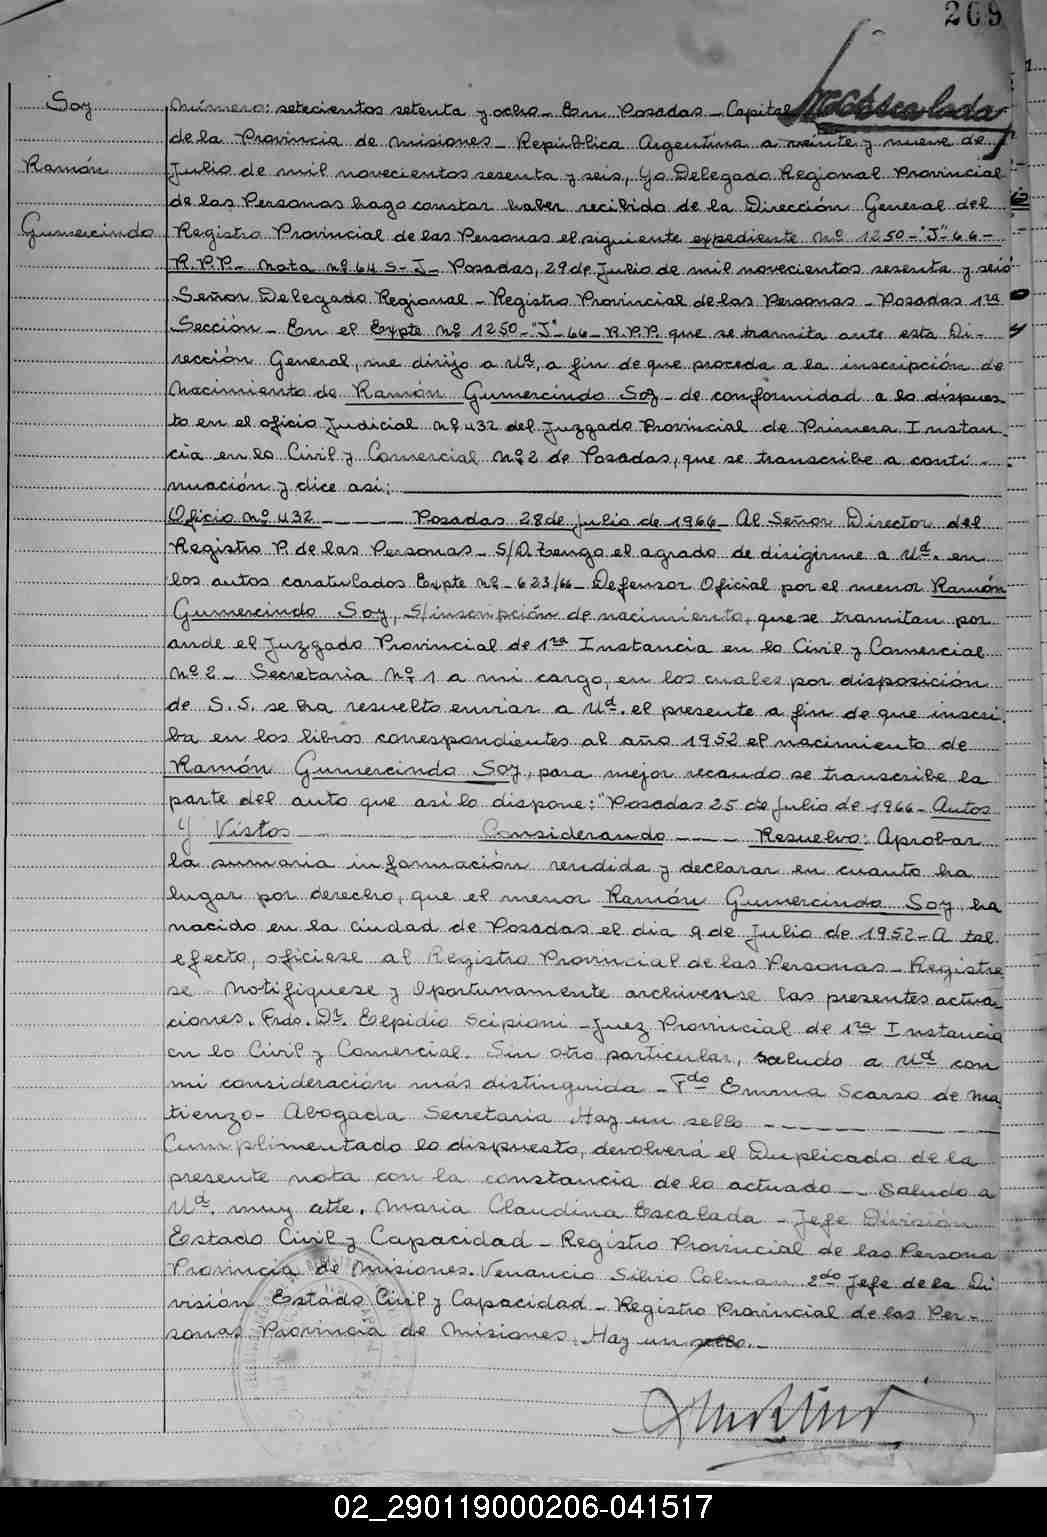 209
Soy
Ramón
Gumercindo
Número: setecientos setenta y ocho_ En Posadas_Capital
de la Provincia de Misiones_ República Argentina a veinte y nueve de
Julio de mil novecientos sesenta y seis, Yo Delegado Regional Provincial
de las Personas hago constar haber recibido de la Dirección General del
Registro Provincial de las Personas el siguiente expediente Nº 1250-"J"-66-
R.P.P_ Nota nº 64 S-J_ Posadas, 29 de Julio de mil novecientos sesenta y seis
Señor Delegado Regional_Registro Provincial de las Personas_Posadas 1ra
Sección_ En el Expte Nº 1250-"J"-66_R.P.P. que se tramita ante esta Di-
rección General, me dirijo a Ud, a fin de que proceda a la inscripción de
Nacimiento de Ramón Gumercindo Soy_de conformidad a lo dispues-
to en el oficio Judicial Nº 432 del Juzgado Provincial de Primera Instan-
cia en lo Civil y Comercial Nº 2 de Posadas, que se transcribe a conti-
nuación y dice así:
Oficio Nº 432_____Posadas 28 de Julio de 1966_Al Señor Director del
Registro P. de las Personas_S/D. Tengo el agrado de dirigirme a Ud. en
los autos caratulados Expte Nº_623/66_Defensor Oficial por el menor Ramón
Gumercindo Soy, S/inscripción de nacimiento, que se tramitan por
ande el Juzgado Provincial de 1ra Instancia en lo Civil y Comercial
Nº 2_ Secretaria Nº 1 a mi cargo, en los cuales por disposición
de S.S. se ha resuelto enviar a Ud. el presente a fin de que inscri-
ba en los libros correspondientes al año 1952 el nacimiento de
Ramón Gumercindo Soy, para mejor recaudo se transcribe la
parte del auto que así lo dispone: "Posadas 25 de Julio de 1966_Autos
Y Vistos__________Considerando_____Resuelvo: Aprobar
la sumaria información rendida y declarar en cuanto ha
lugar por derecho, que el menor Ramón Gumercindo Soy ha
nacido en la ciudad de Posadas el dia 9 de Julio de 1952_A tal
efecto, oficiese al Registro Provincial de las Personas_Registre
se Notifiquese y Oportunamente archivense las presentes actua-
ciones. Frdo. Dr. Elpidio Scipioni_Juez Provincial de 1ra Instancia
en lo Civil y Comercial. Sin otro particular, saludo a Ud con
mi consideración más distinguida_Fdo Emma Scarso de Ma-
tienzo_ Abogada Secretaria Hay un sello
Cumplimentado lo dispuesto, devolverá el Duplicado de la
presente nota con la constancia de lo actuado__Saludo a
Ud. muy atte. Maria Claudina Escalada_Jefe División
Estado Civil y Capacidad_Registro Provincial de las Persona
Provincia de Misiones. Venancio Silvio Colman 2do Jefe de la Di
visión Estado Civil y Capacidad_Registro Provincial de las Per-
sonas Provincia de Misiones. Hay un sello._
02_290119000206-041517